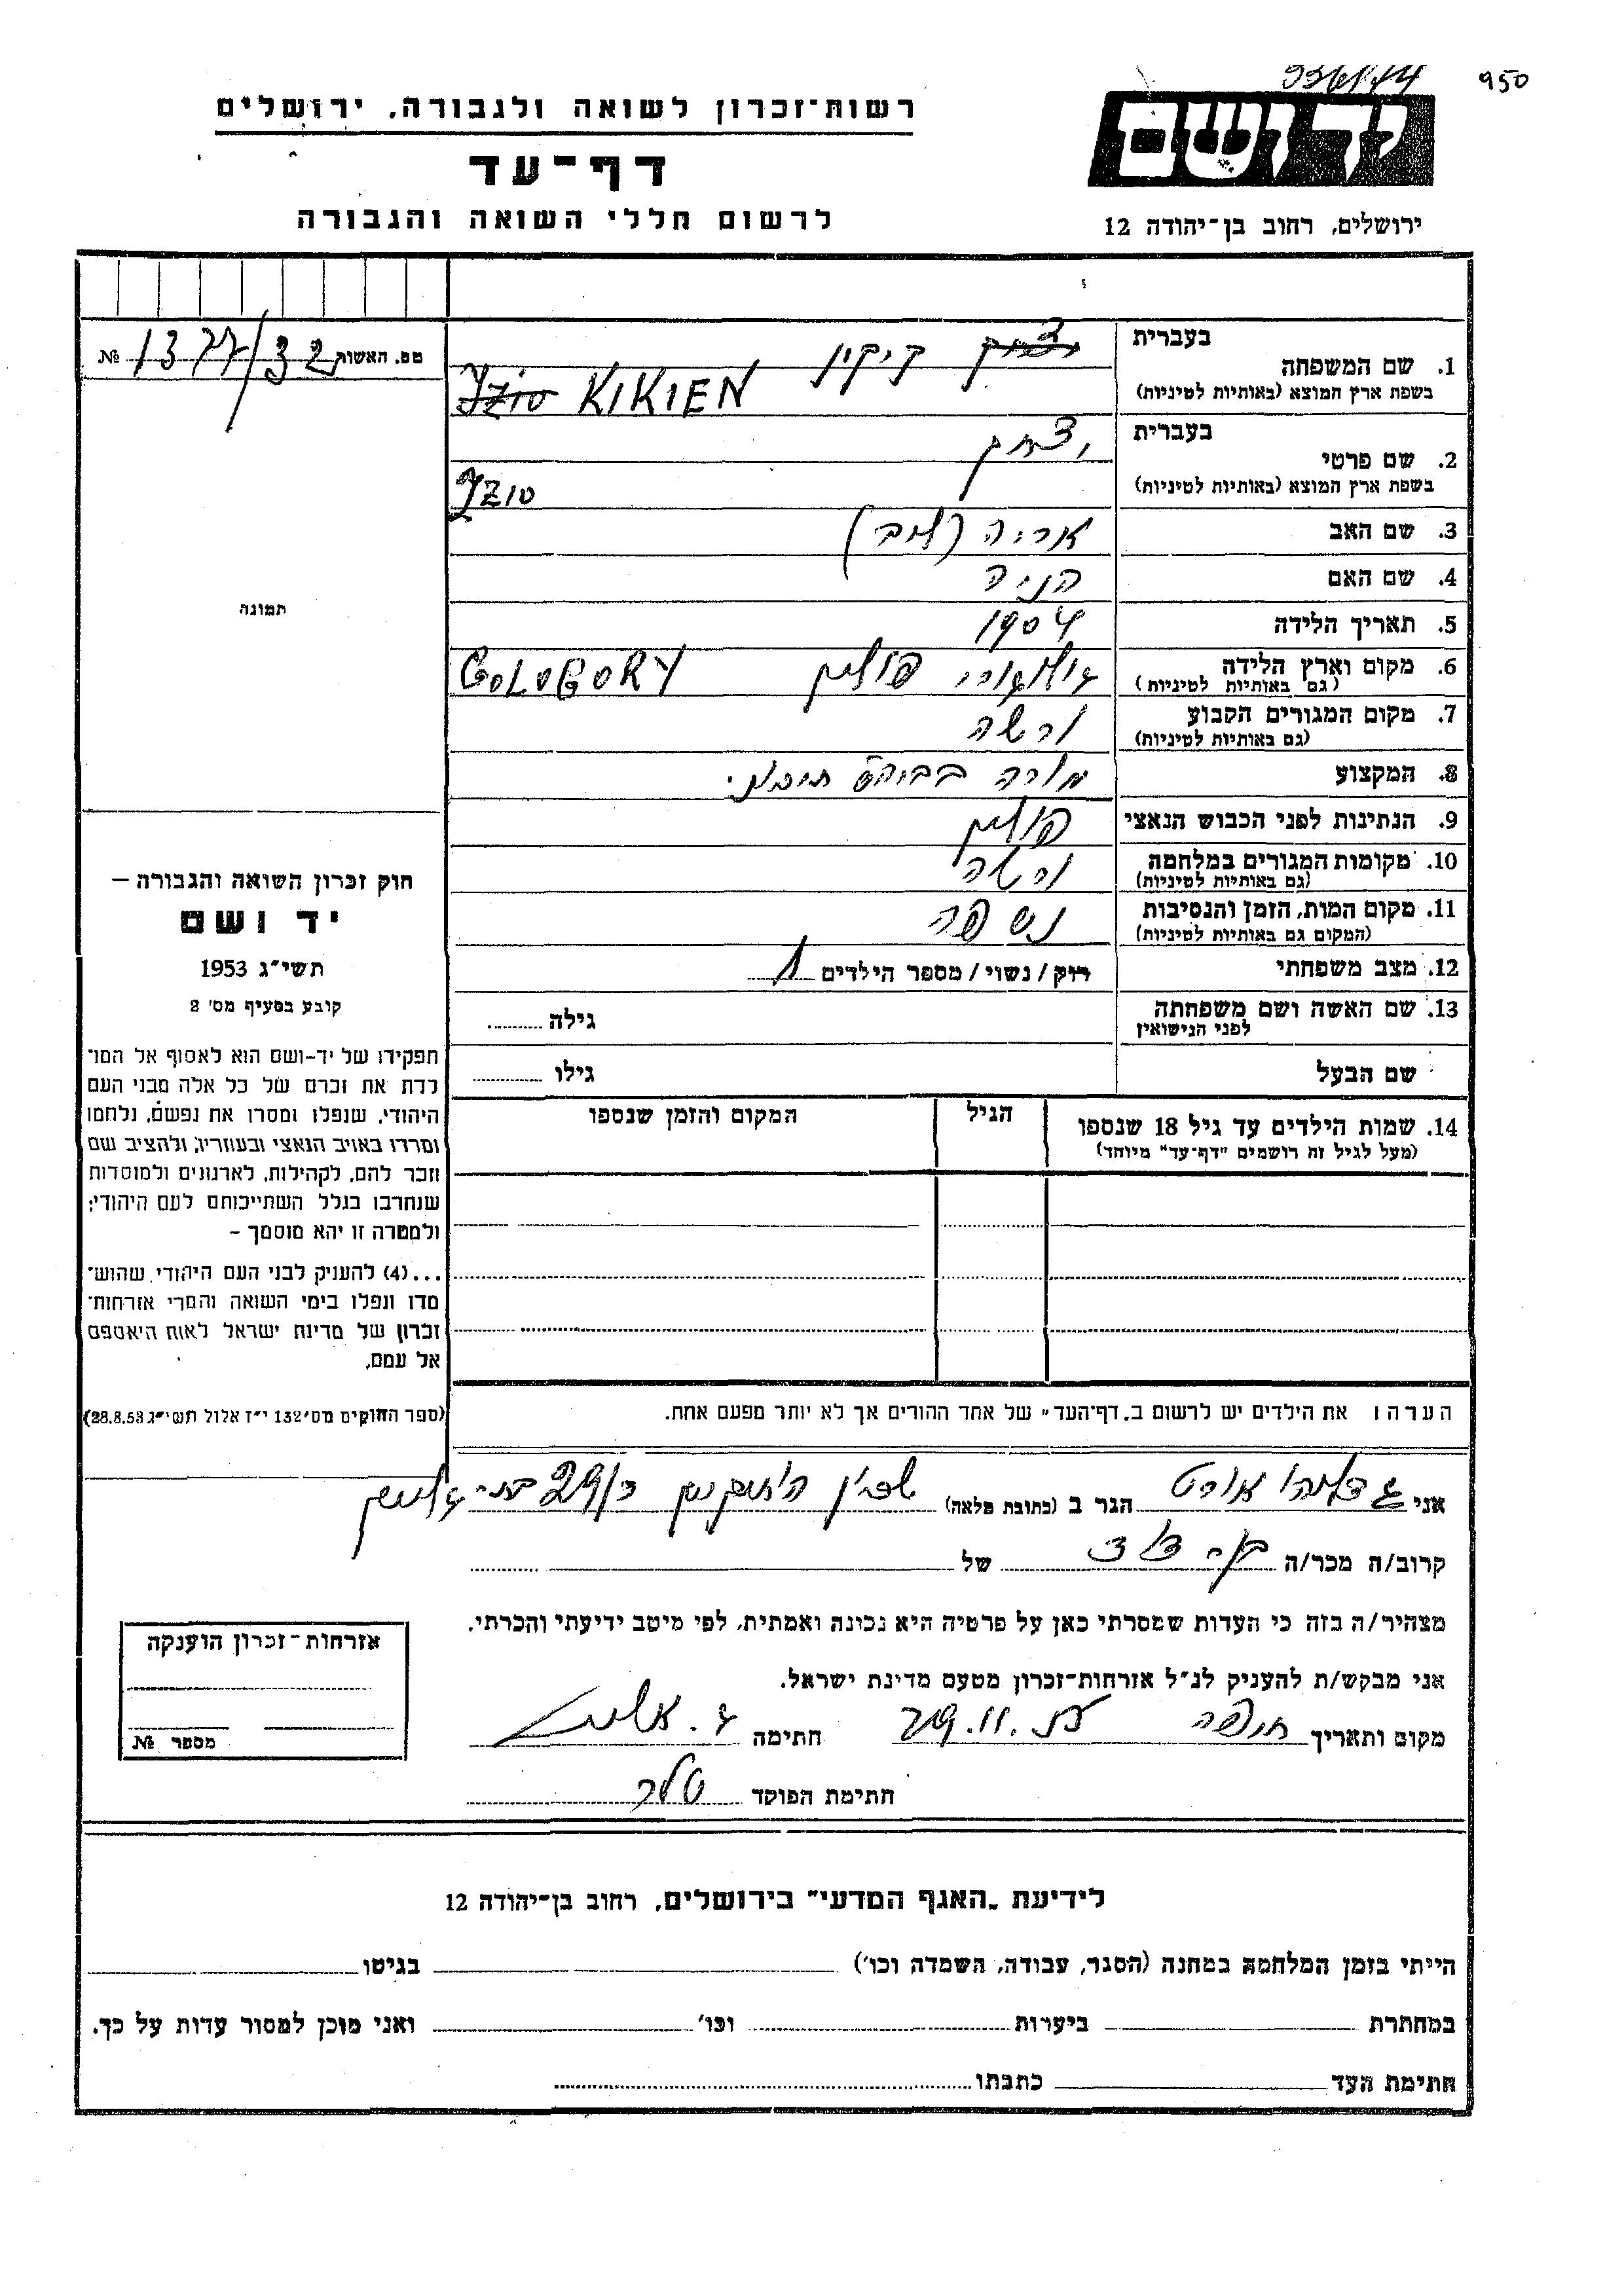 950
רשות־זכרון לשואה ולגבורה, ירושלים
דף־עד
לרשום חללי השואה והגבורה
יד ושם
ירושלים, רחוב בן־יהודה 12
מס. האשות 1377/32 №
תמונה
חוק זכרון השואה והגבורה –
יד ושם
תשי״ג 1953
קובע בסעיף מס' 2
תפקידו של יד-ושם הוא לאסוף אל המו־
לדת את זכרם של כל אלה מבני העם
היהודי, שנפלו ומסרו את נפשם, נלחמו
ומרדו באויב הנאצי ובעוזריו, ולהציב שם
וזכר להם, לקהילות, לארגונים ולמוסדות
שנחרבו בגלל השתייכותם לעם היהודי;
ולמטרה זו יהא מוסמך –
...(4) להעניק לבני העם היהודי שהוש־
מדו ונפלו בימי השואה והמרי אזרחות־
זכרון של מדינת ישראל לאות היאספם
אל עמם.
(ספר החוקים מס' 132 י״ז אלול תשי״ג 28.8.53)
בעברית
1. שם המשפחה קיקין
בשפת ארץ המוצא (באותיות לטיניות) Izio KIKIEN
בעברית
2. שם פרטי יצחק
בשפת ארץ המוצא (באותיות לטיניות) IZIO
3. שם האב אריה (לוב)
4. שם האם הניה
5. תאריך הלידה 1904
6. מקום וארץ הלידה גולוגורי פולין GOLOGORY
(גם באותיות לטיניות)
7. מקום המגורים הקבוע ורשה
(גם באותיות לטיניות)
8. המקצוע מורה בביה״ס תיכוני.
9. הנתינות לפני הכבוש הנאצי פולין
10. מקומות המגורים במלחמה ורשה
(גם באותיות לטיניות)
11. מקום המות, הזמן והנסיבות נספה
(המקום גם באותיות לטיניות)
12. מצב משפחתי רוק/נשוי/מספר הילדים 1
13. שם האשה ושם משפחתה גילה
לפני הנישואין
שם הבעל גילו
14. שמות הילדים עד גיל 18 שנספו הגיל המקום והזמן שנספו
(מעל לגיל זה רושמים "דף־עד" מיוחד)
הערה: את הילדים יש לרשום ב„דף־העד״ של אחד ההורים אך לא יותר מפעם אחת.
אני הגר ב (כתובת מלאה)
קרוב/ה מכר/ה בן דוד של
מצהיר/ה בזה כי העדות שמסרתי כאן על פרטיה היא נכונה ואמתית, לפי מיטב ידיעתי והכרתי.
אני מבקש/ת להעניק לנ״ל אזרחות־זכרון מטעם מדינת ישראל.
מקום ותאריך חיפה חתימה
חתימת הפוקד
אזרחות־זכרון הוענקה
מספר №
לידיעת „האגף המדעי״ בירושלים, רחוב בן־יהודה 12
הייתי בזמן המלחמה במחנה (הסגר, עבודה, השמדה וכו') בגיטו
במחתרת ביערות וכו' ואני מוכן למסור עדות על כך.
חתימת העד כתבתו